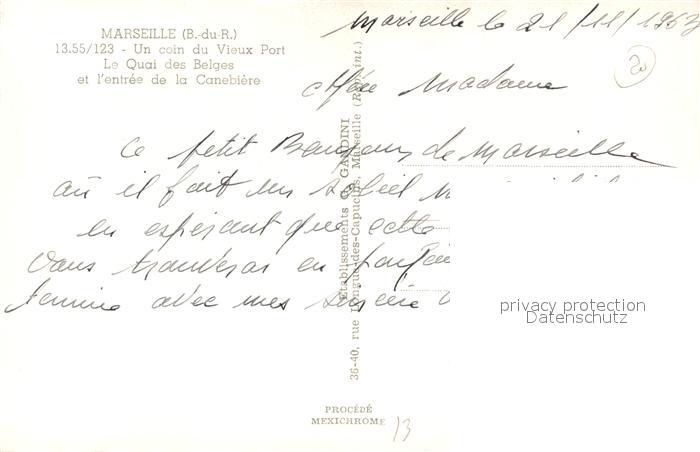 MARSEILLE (B.-du-R.)
13.55/123 - Un coin du Vieux Port
Le Quai des Belges
et l'entrée de la Canebière
Marseille le 21/11/1953
20
Chère Madame
Ce petit Bonjour de Marseille
où il fait un soleil
en espérant que cette
vous trouverar en parfai
termine avec mes sincère
Etablissements C. GANDINI
36-40, rue Longue-des-Capucins, Marseille (Rep. int.)
privacy protection
Datenschutz
PROCÉDÉ
MEXICHROME
13